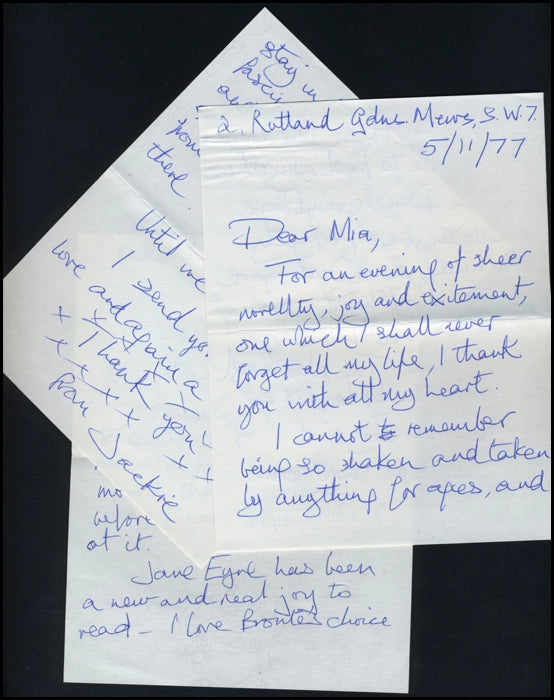 2, Rutland Gdns. Mews, S.W.7.
5/11/77
Dear Mia,
For an evening of sheer
novellty, joy and exitement,
one which I shall never
forget all my life, I thank
you with all my heart.
I cannot to remember
being so shaken and taken
by anything for apes, and
stay in
from
there.
Until we
I send yo
love and again a
x x x x
Thank you
+ x x x x x +
from Jackie
mo
before
at it.
Jane Eyre has been
a new and real joy to
read – I love Brontë's choice